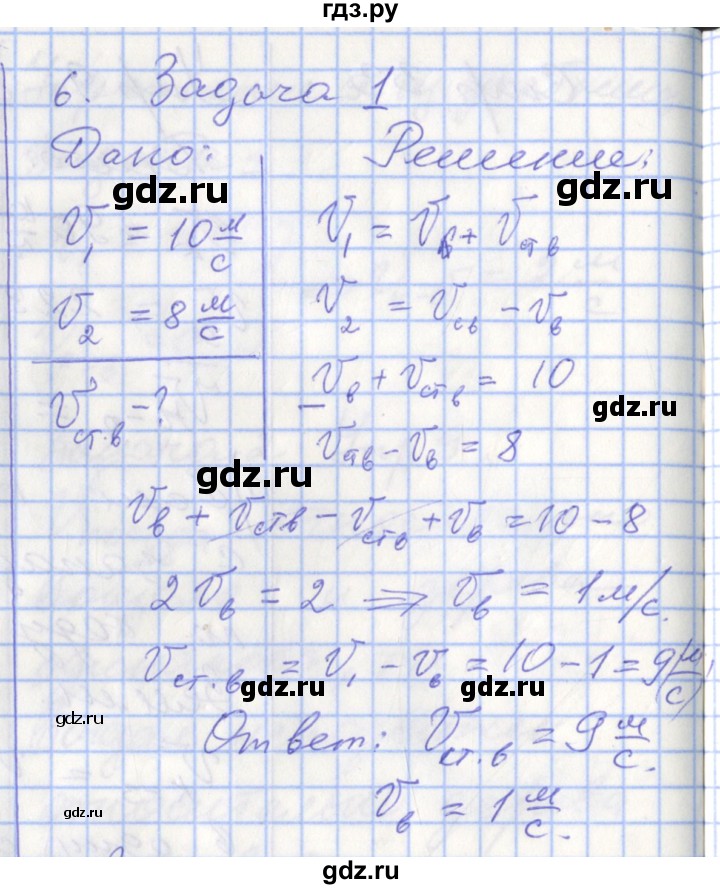 гдз.ру
6. Задача 1
Дано:
V₁ = 10 м/с
V₂ = 8 м/с
Vст.в - ?
Решение:
V₁ = Vв + Vств
V₂ = Vсв - Vв
− Vв + Vств = 10
Vств - Vв = 8
Vв + Vств - Vств + Vв = 10 - 8
2Vв = 2 => Vв = 1 м/с.
Vст.в = V₁ - Vв = 10 - 1 = 9 (м/с)
Ответ: Vст.в = 9 м/с.
Vв = 1 м/с.
gdz.ru
gdz.ru
gdz.ru
gdz.ru
gdz.ru
gdz.ru
gdz.ru
gdz.ru
gdz.ru
gdz.ru